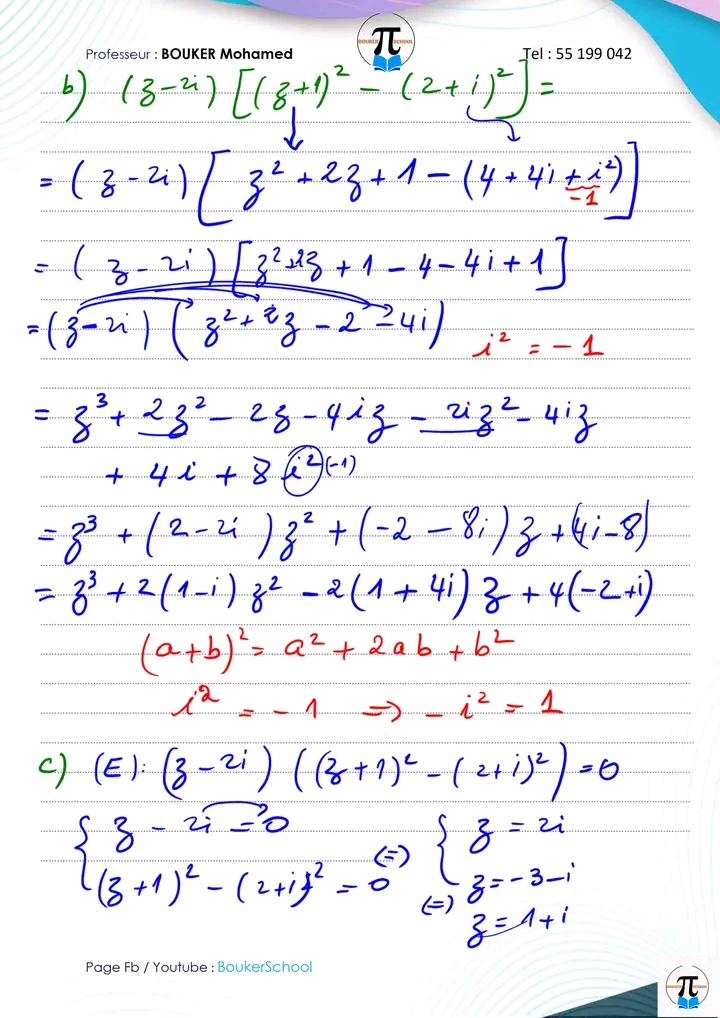 BOUKER SCHOOL
π
Professeur : BOUKER Mohamed
Tel : 55 199 042
b) (z-2i) [(z+1)² - (2+i)²] =
= (z-2i) [z² + 2z + 1 - (4 + 4i + i²)]
-1
= (z-2i) [z²+2z + 1 - 4 - 4i + 1]
= (z-2i) (z² + 2z - 2 - 4i)
i² = -1
= z³ + 2z² - 2z - 4iz - 2iz² - 4iz
+ 4i + 8i² (-1)
= z³ + (2-2i) z² + (-2-8i) z + (4i-8)
= z³ + 2(1-i) z² - 2(1+4i) z + 4(-2+i)
(a+b)² = a² + 2ab + b²
i² = -1 => -i² = 1
c) (E): (z-2i) ((z+1)² - (2+i)²) = 0
{ z - 2i = 0
(z+1)² - (2+i)² = 0
(=) { z = 2i
z = -3-i
(=) z = 1+i
Page Fb / Youtube : BoukerSchool
π